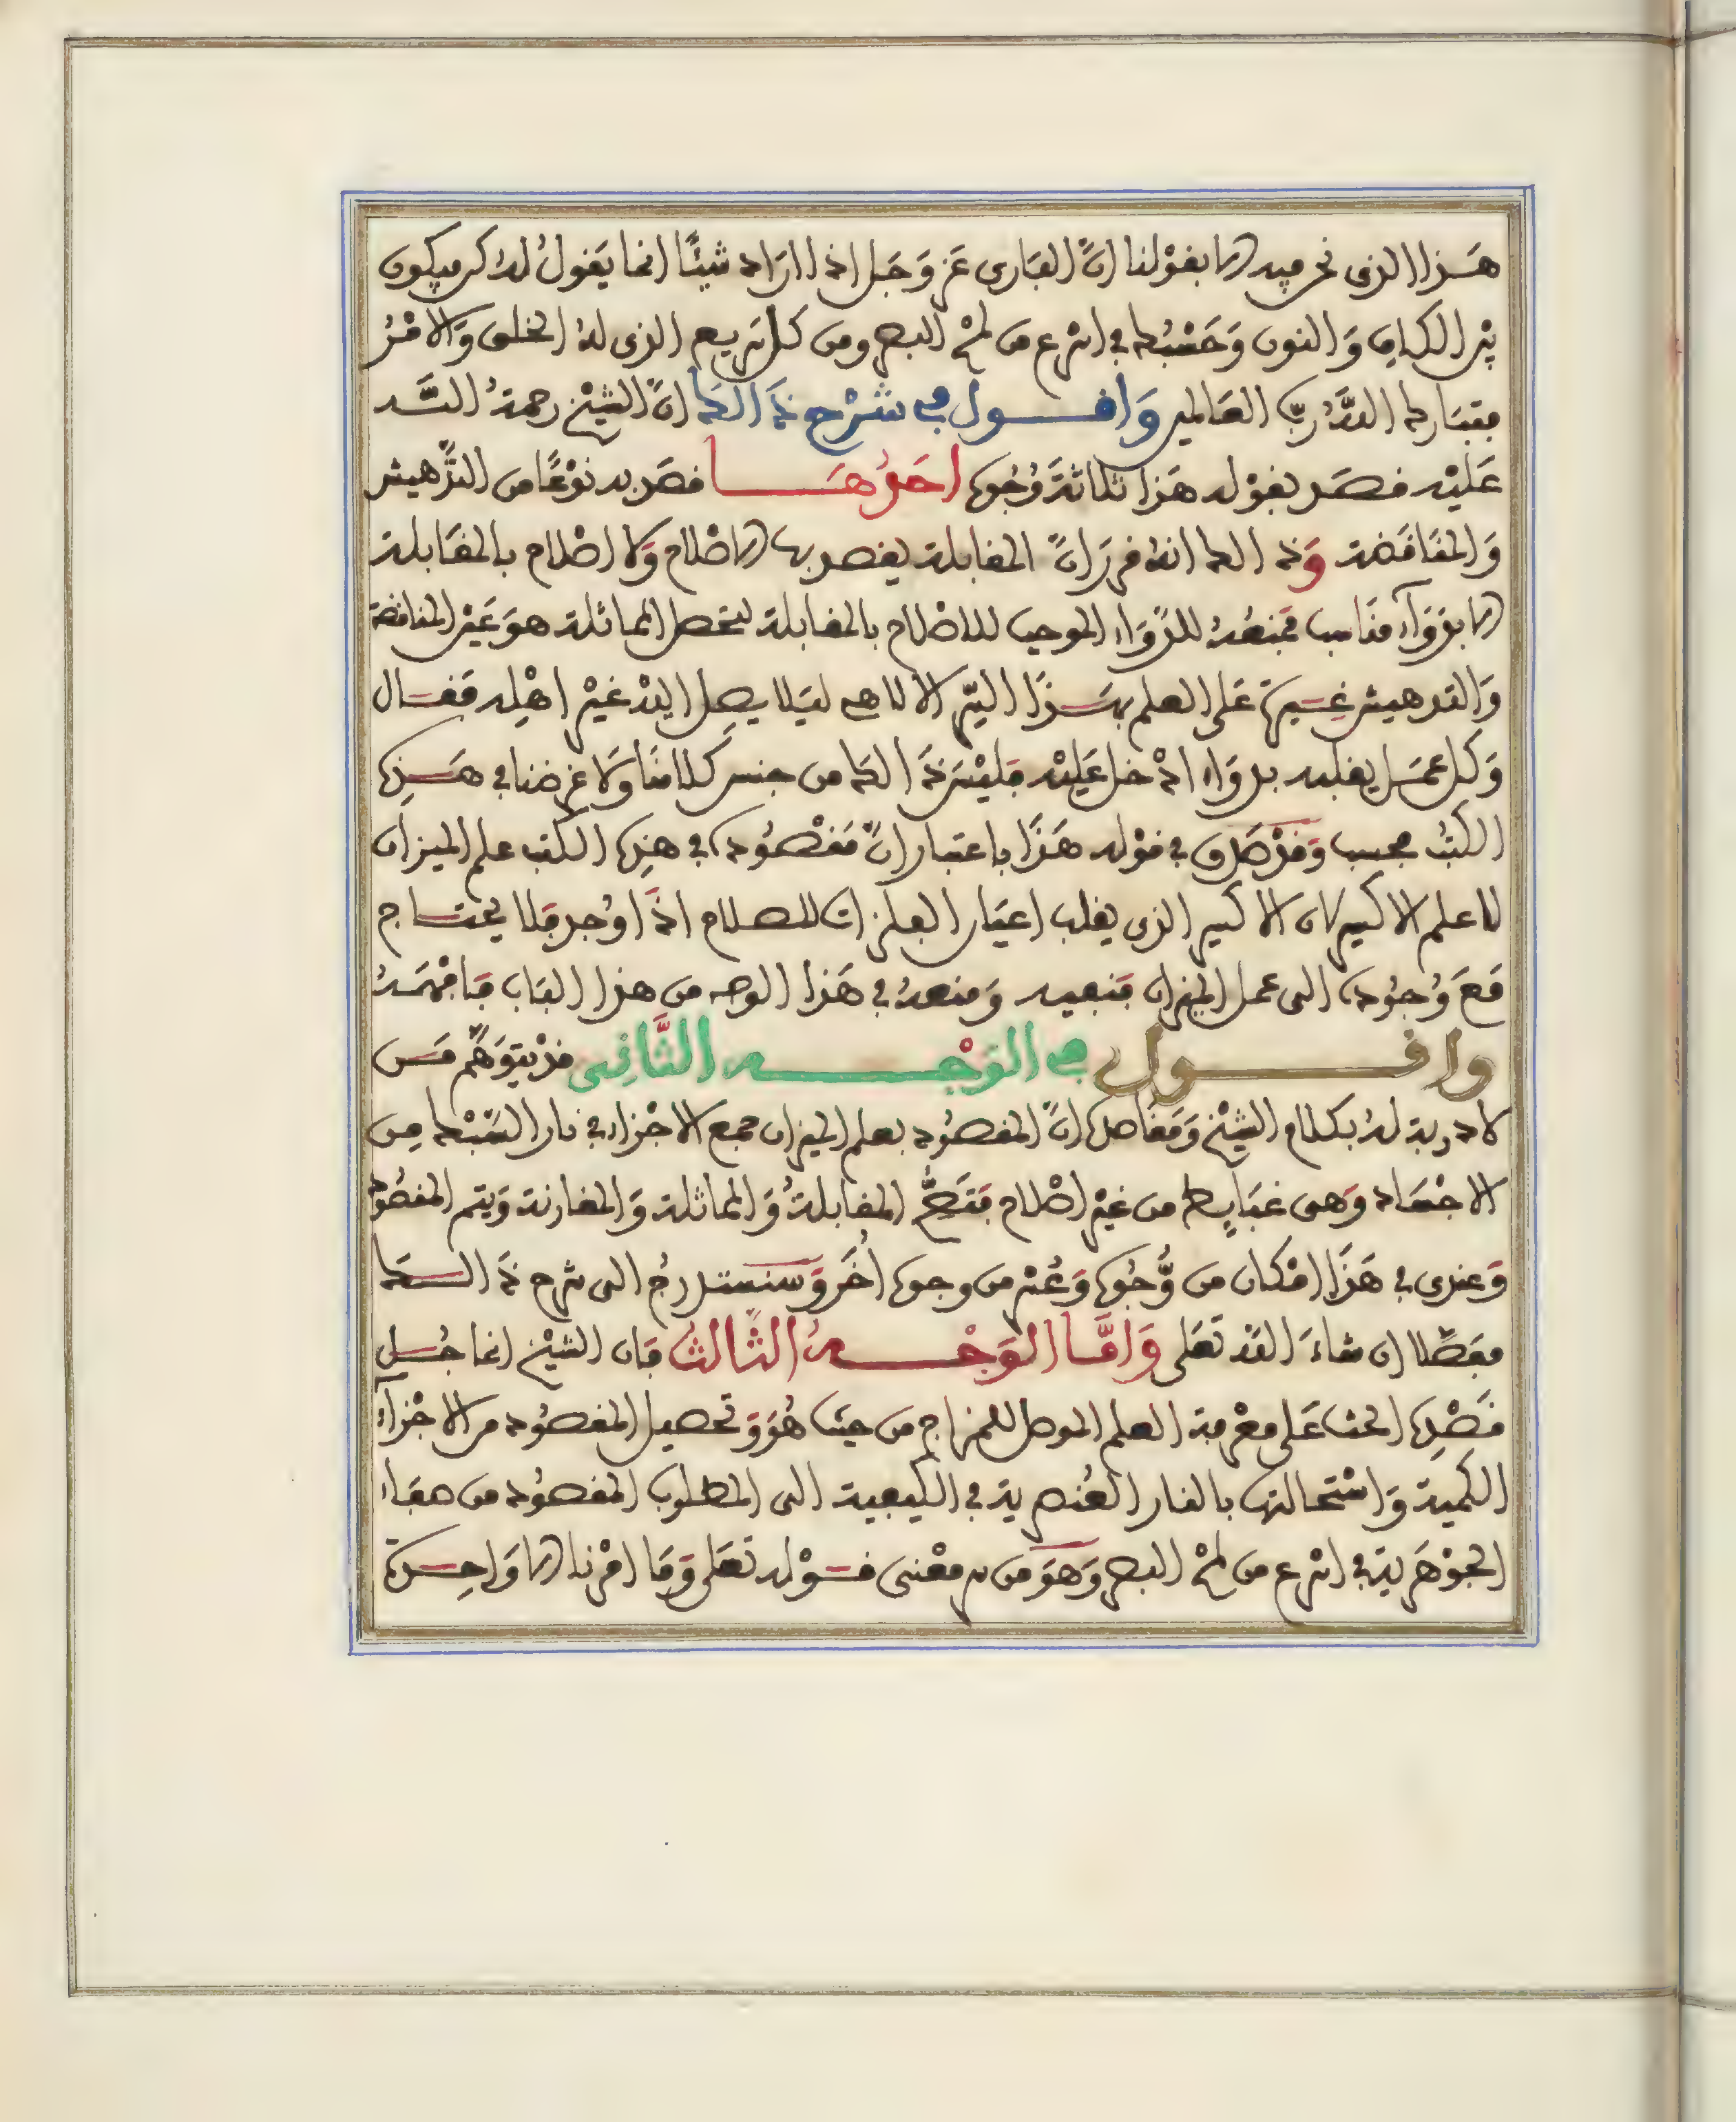 هَذا الذى نحن فيه الا بقوْلنا انَّ البَارى عَز وَجَل اذا ارَاد شيئًا انما يَقولُ لهُ كن فيكون
بيْن الكاف وَالنون وَحَسْبُك فى اسرع من لمْح البصر ومن كل سَريع الذى لهُ الخلق وَالامْرُ
فتبَارك اللهُ رَبّ العَالمين وَاقول فى شرْح ذَالكَ انَّ الشيْخ رحمةُ الله
عَليْه قصَد بقوْله هَذا ثلاثةَ وُجُوه احَدُهَا قصَد به نوْعًا من التدْهيش
وَالمنَاقضة وَذالك انهُ قرر انَّ المقابلة يقصد بها الاصْلاح وَلا اصْلاح بالمقَابلة
الا بدوَآء منَاسب فمنعُهُ للدوَاء الموجب للاصْلاح بالمقابلة لتحصل المماثلة هوَ عَيْن المناقضة
وَالتدهيش غيرة عَلى العلم بهَذا السّر الالاهى ليَلا يصل اليْه غيْر اهْله فقال
وَكل عمَل يغلبه بدوَاء ادْخل عَليْه فليْسَ ذَالكَ من جنس كلامنَا وَلا غرضنا فى هَذه
الكتُب فحسب وَقدْ صَدق فى قوْله هَذَا باعتبار انَّ مَقْصُوده فى هذه الكتب علم الميزان
لا علم الاكسير لان الاكسير الذى يقلب اعيَان الفلزات للصلاح اذَا وُجد فلا يحتاج
مَعَ وُجُوده الى عمل الميزان فنفيه وَمنعهُ فى هَذا الوجه من هذا البَاب فَافهَمهُ
واقول فى الوَجْه الثَّانِى قدْ يتوَهَّم مَن
لا دربة لهُ بكلام الشيْخ وَمَقَاصده انَّ المقصُود بعلم الميزان جمع الاجْزاء فى نار السَّبْك مِن
الاجْسَاد وَهى غبَايط من غيْر اصْلاح فتَصِحُّ المقابلةُ وَالمماثلة وَالمقارنة وَيتم المقصُود
وَعندى فى هَذَا امْكان من وُّجُوه وَعُسْر من وجوه اُخَر وَسنستدرجُ الى شرح ذَالك
مفصَّلا ان شاءَ اللهُ تعَلى وَامَّا الوَجْهُ الثَّالثُ فان الشيْخ انما جُل
قصْده الحث عَلى معْرفة العلم الموصل للمزاج من حيث هُوَ وَتحصيل المقصُود من الاجْزآء
الكمية وَاسْتحالتها بالنار العُنصرية فى الكيفية الى المطلوب المقصُود من هبَاء
الجوْهَرية فى اسرع من لمْح البصر وَهوَ من سر معْنى قوْله تعَلى وَمَا امْرنا الا وَاحِدة